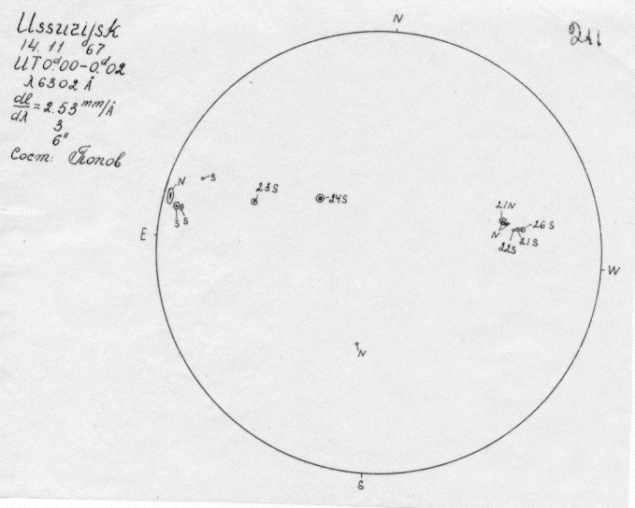 Ussurijsk
14. 11 67
UT 0ᵈ.00-0ᵈ.02
λ 6302 Å
dl/dλ = 2.53 mm/Å
3
6"
Сост: Попов
N
211
N
S
S
S
23S
24S
21N
N
26S
22S
21S
E
W
N
S